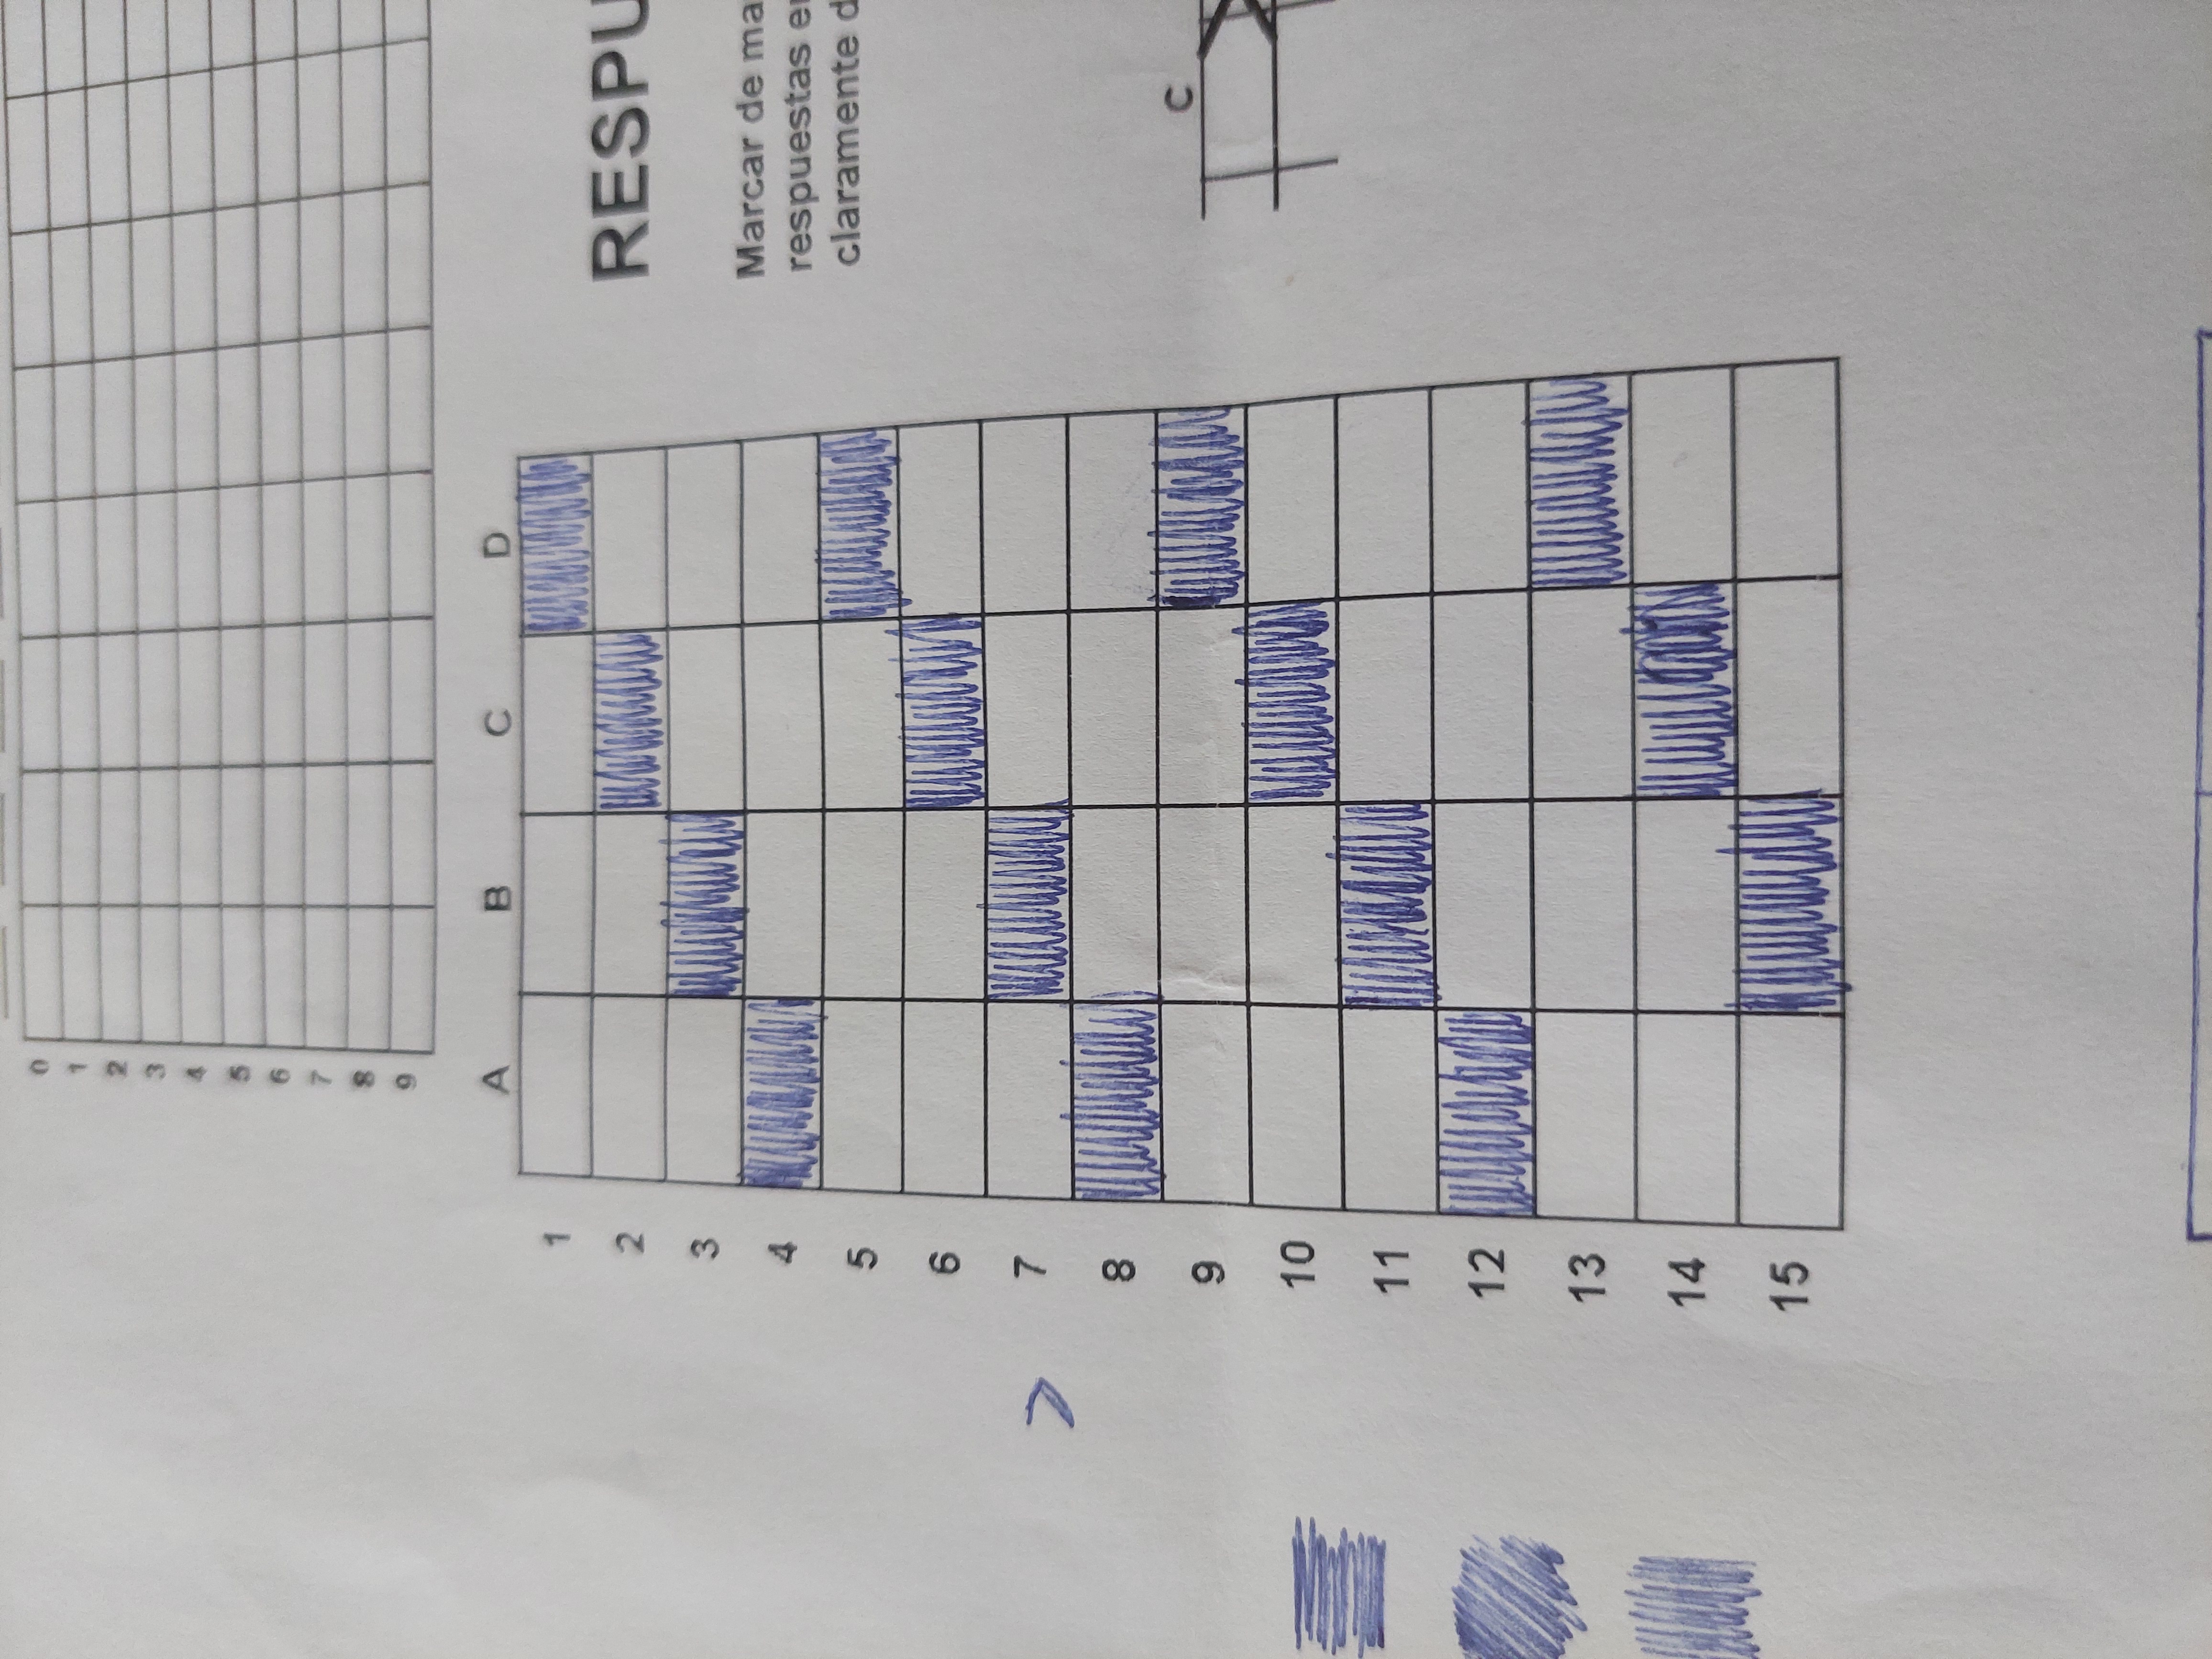 0
1
2
3
4
5
6
7
8
9
A B C D
1
2
3
4
5
6
7
8
9
10
11
12
13
14
15
RESPU
Marcar de ma
respuestas e
claramente d
C